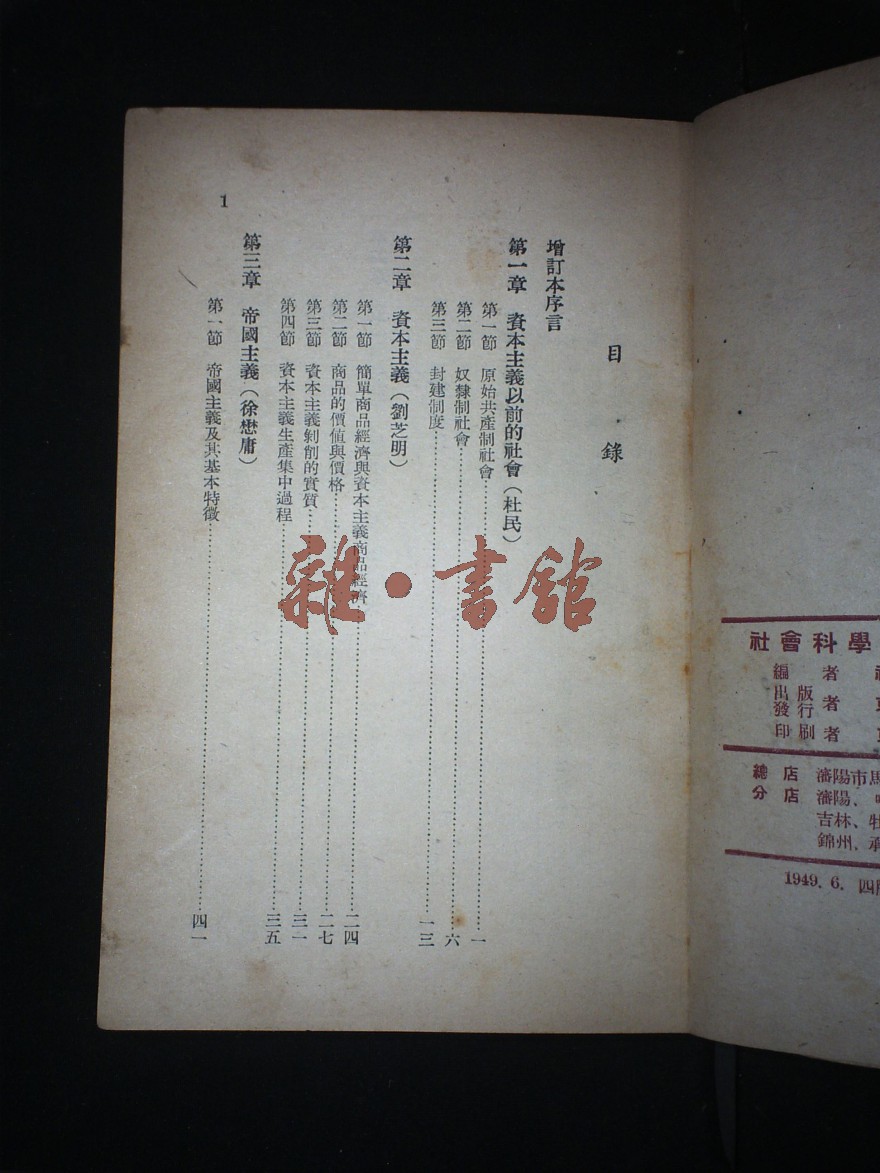 目錄
增訂本序言
第一章 資本主義以前的社會(杜民)
第一節 原始共產制社會……一
第二節 奴隸制社會……六
第三節 封建制度……一三
第二章 資本主義(劉芝明)
第一節 簡單商品經濟與資本主義商品經濟……二四
第二節 商品的價值與價格……二七
第三節 資本主義剝削的實質……三一
第四節 資本主義生產集中過程……三五
第三章 帝國主義(徐懋庸)
第一節 帝國主義及其基本特徵……四一
1
雜·書館
社會科學
編者
出版
發行者
印刷者
總店 瀋陽市馬
分店 瀋陽、
吉林、牡
錦州、承
1949.6. 四版